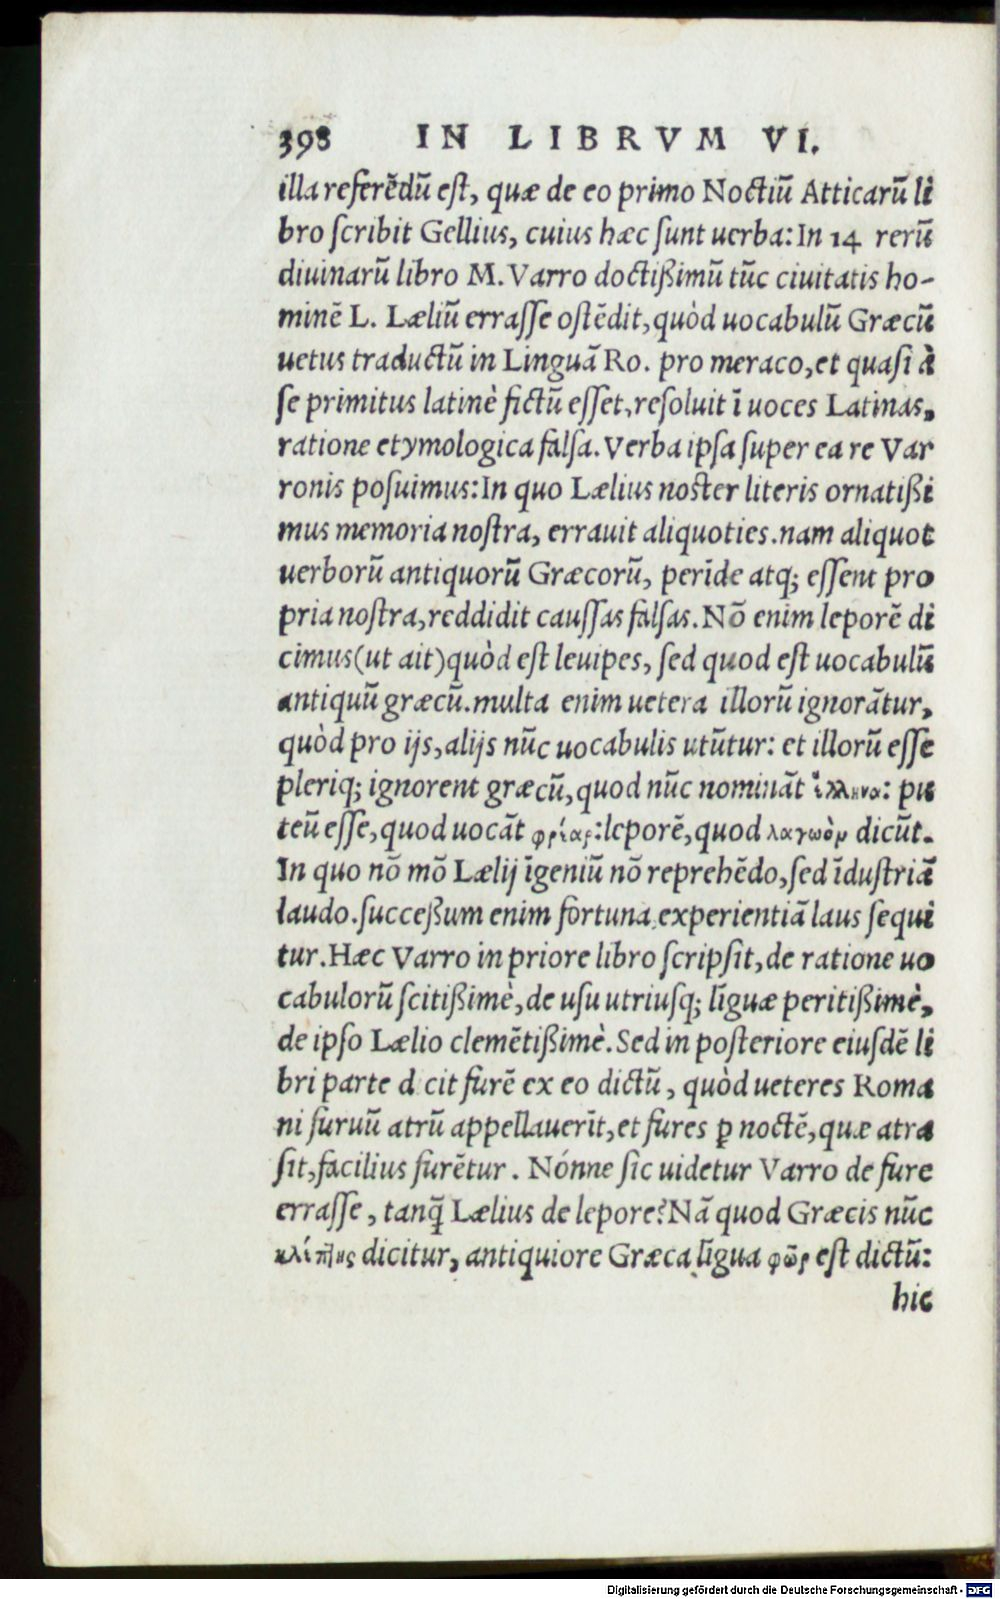 398 IN LIBRVM VI.
illa referēdū est, quæ de eo primo Noctiū Atticarū li
bro scribit Gellius, cuius hæc sunt uerba: In 14 rerū
diuinarū libro M. Varro doctißimū tūc ciuitatis ho-
minē L. Læliū errasse ostēdit, quòd uocabulū Græcū
uetus traductū in Linguā Ro. pro meraco, et quasi à
se primitus latinè fictū esset, resoluit ī uoces Latinas,
ratione etymologica falsa. Verba ipsa super ea re Var
ronis posuimus: In quo Lælius noster literis ornatißi
mus memoria nostra, errauit aliquoties. nam aliquot
uerborū antiquorū Græcorū, perīde atq; essent pro
pria nostra, reddidit caussas falsas. Nō enim leporē di
cimus (ut ait) quòd est leuipes, sed quod est uocabulū
antiquū græcū. multa enim uetera illorū ignorātur,
quòd pro ijs, alijs nūc uocabulis utūtur: et illorū esse
pleriq; ignorent græcū, quod nūc nomināt ἕλληνα: pu
teū esse, quod uocāt φρέαρ: leporē, quod λαγωὸν dicūt.
In quo nō mō Lælij īgeniū nō reprehēdo, sed īdustriā
laudo. succeßum enim fortuna, experientiā laus sequi
tur. Hæc Varro in priore libro scripsit, de ratione uo
cabulorū scitißimè, de usu utriusq; līguæ peritißimè,
de ipso Lælio clemētißimè. Sed in posteriore eiusdē li
bri parte d cit furē ex eo dictū, quòd ueteres Roma
ni furuū atrū appellauerīt, et fures ꝑ noctē, quæ atra
sit, facilius furētur. Nónne sic uidetur Varro de fure
errasse, tanq̄ Lælius de lepore? Nā quod Græcis nūc
κλέπτης dicitur, antiquiore Græca līgua φῶρ est dictū:
hic
Digitalisierung gefördert durch die Deutsche Forschungsgemeinschaft - DFG